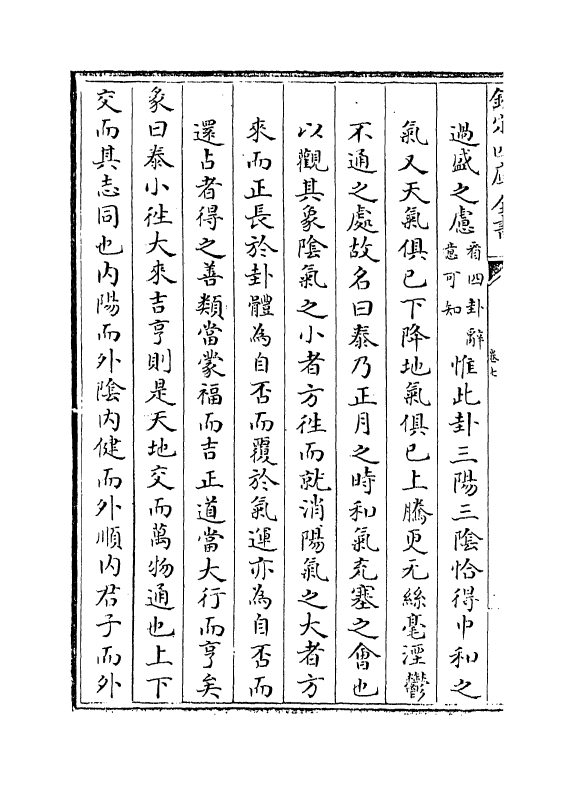 欽定四庫全書
卷七
過盛之慮看四卦辭意可知惟此卦三陽三陰恰得中和之
氣又天氣俱已下降地氣俱已上騰更无絲毫湮鬱
不通之處故名曰泰乃正月之時和氣充塞之會也
以觀其象陰氣之小者方徃而就消陽氣之大者方
來而正長於卦體為自否而覆於氣運亦為自否而
還占者得之善類當蒙福而吉正道當大行而亨矣
彖曰泰小徃大來吉亨則是天地交而萬物通也上下
交而其志同也内陽而外陰内健而外順内君子而外